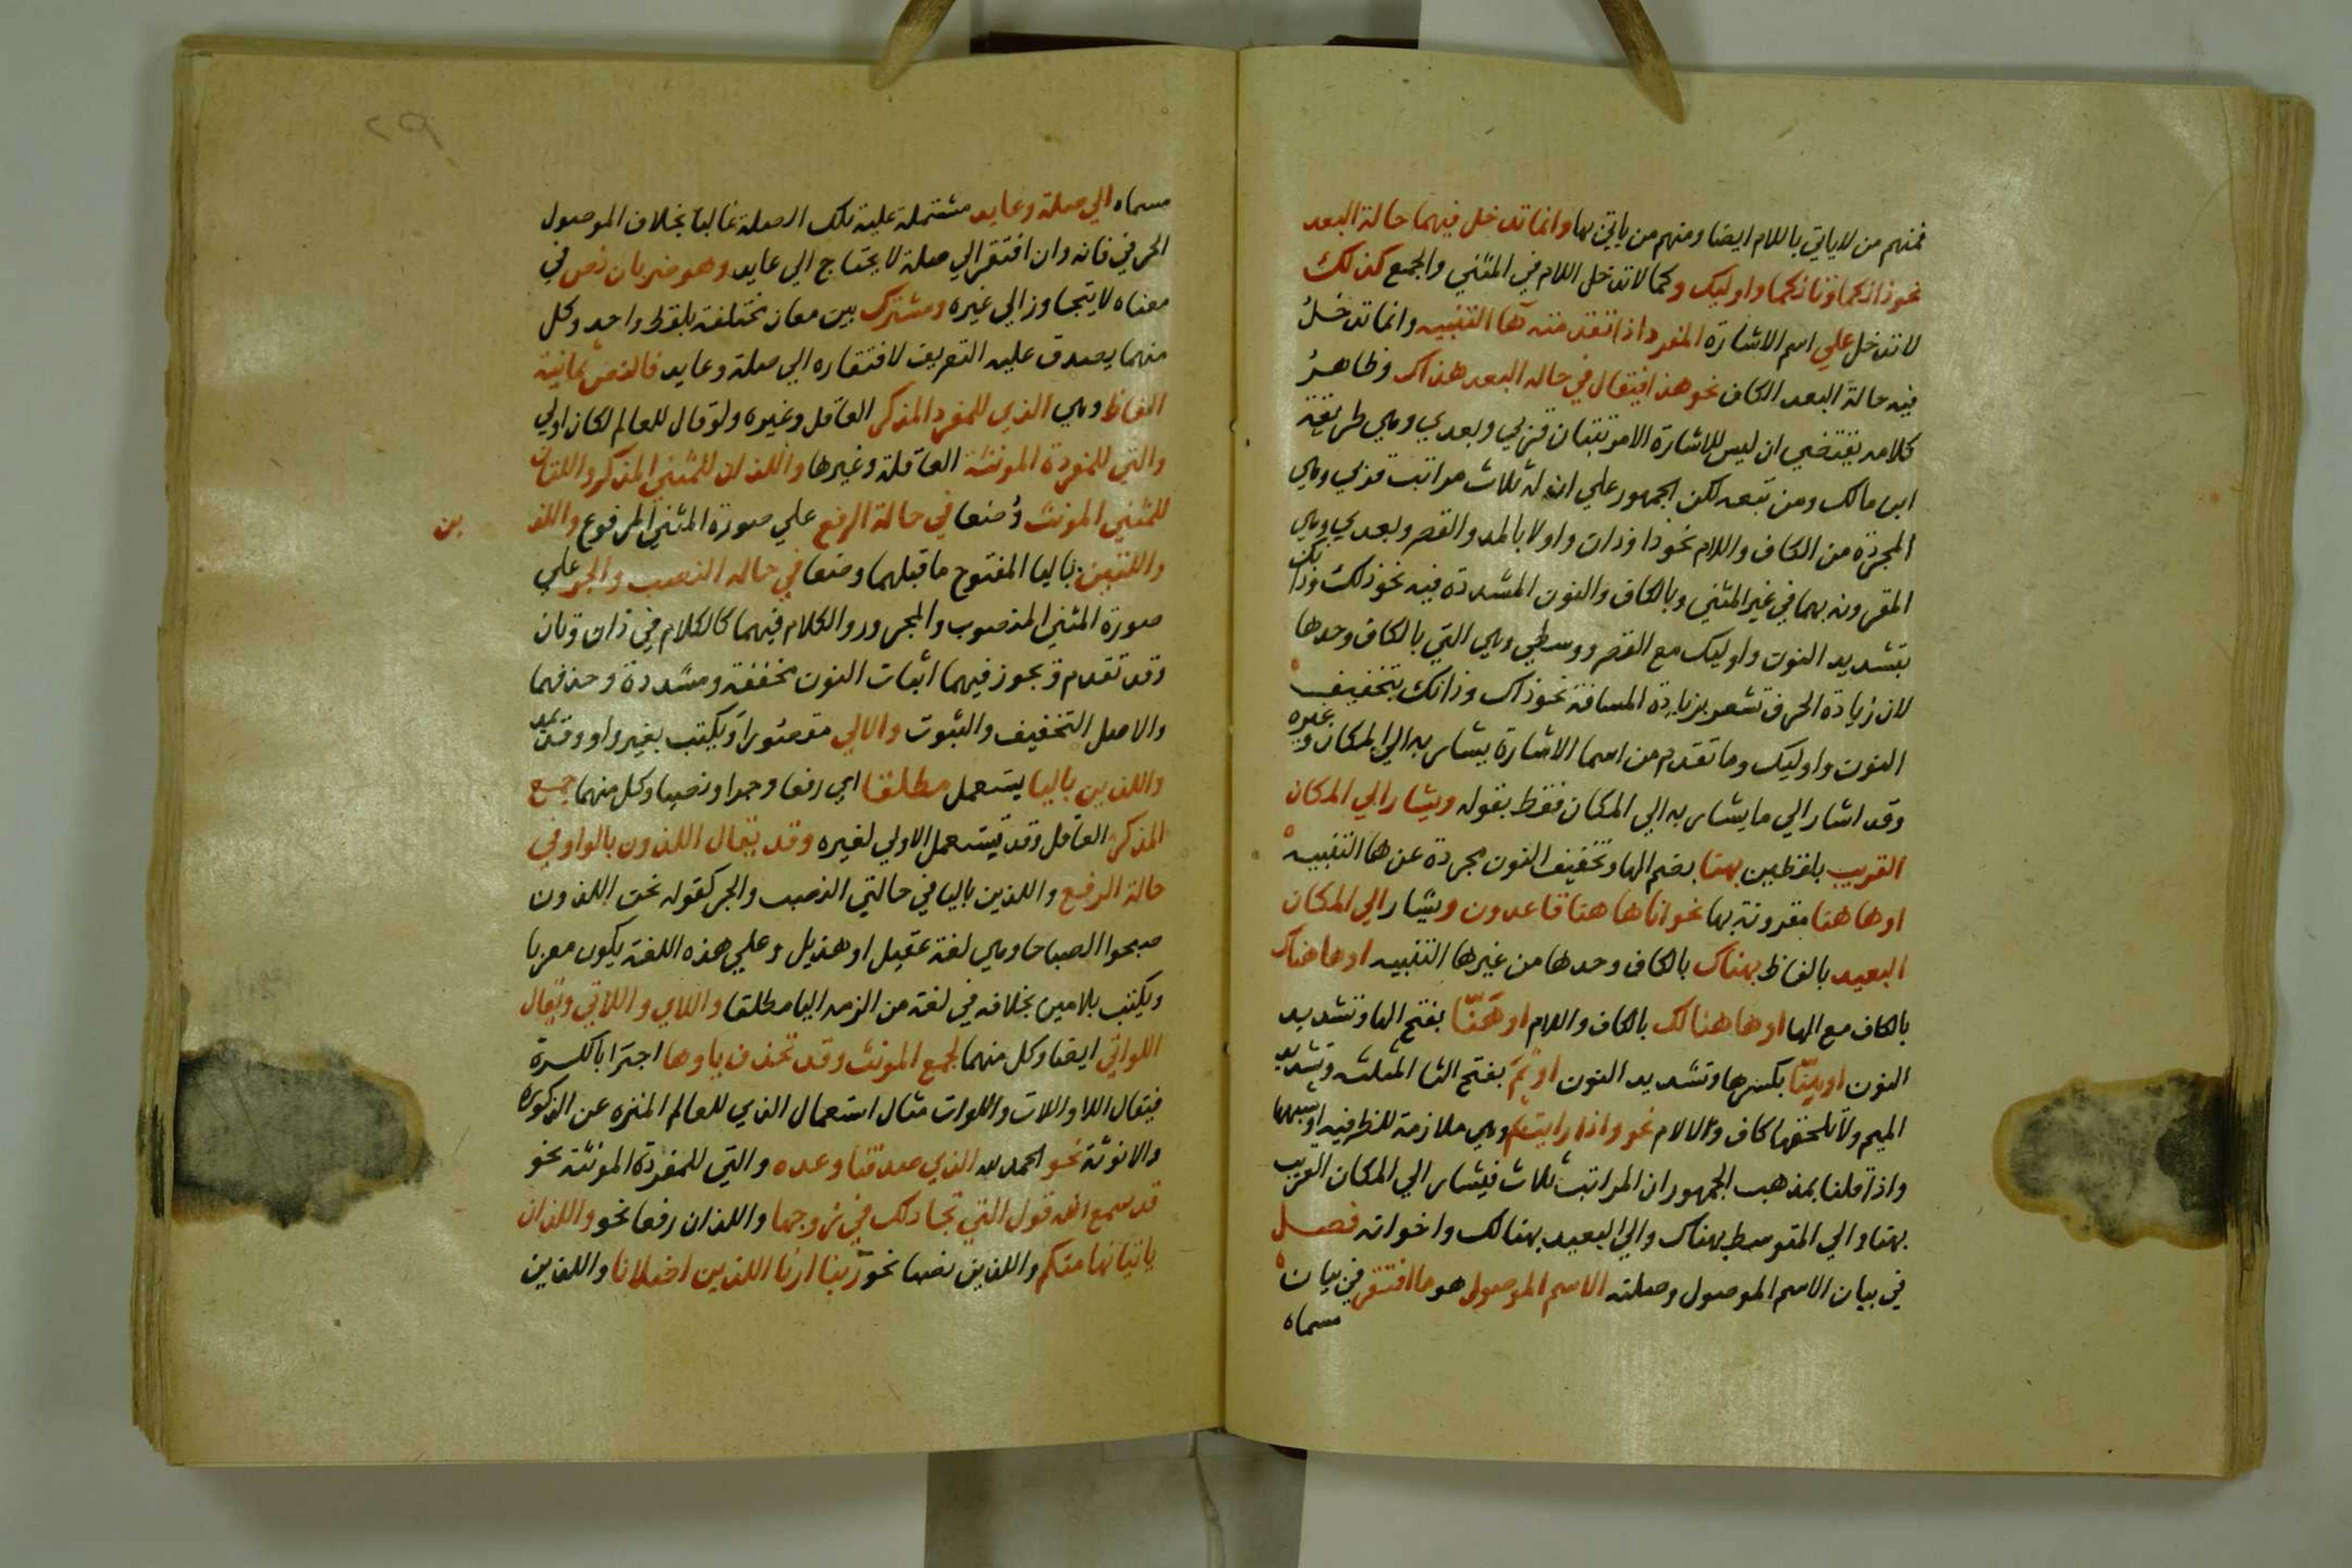 فمنهم من لاياتي باللام ايضا ومنهم من ياتي بها وانما تدخل فيهما حالة البعد
نحو ذانكما وتانكما واوليك وكما لا تدخل اللام في المثني والجمع كذلك
لا تدخل علي اسم الاشارة المفرد اذا تقدمته ها التنبيه وانما تدخل
فيه حالة البعد الكاف نحو هذا فيقال في حاله البعد هذاك وظاهر
كلامه يقتضي ان ليس للاشارة الا مرتبتان قربي وبعدي وهي طريقة
ابن مالك ومن تبعه لكن الجمهور علي ان له ثلاث مراتب قربي وهي
المجردة من الكاف واللام نحو ذا وذان واولا بالمد والقصر وبعدي وهي
المقرونه بهما في غير المثني وبالكاف والنون المشددة فيه نحو ذلك وذانك
بتشديد النون واوليك مع القصر ووسطي وهي التي بالكاف وحدها
لان زيادة الحرف تشعر بزيادة المسافة نحو ذاك وذانك بتخفيف
النون واوليك وما تقدم من اسما الاشارة يشار به الي المكان وغيره
وقد اشار الي ما يشار به الي المكان فقط بقوله ويشار الي المكان
القريب بلفظين بهنا بضم الها وتخفيف النون مجردة عن ها التنبيه
او ها هنا مقرونة بها نحو انا ها هنا قاعدون ويشار الي المكان
البعيد بالفاظ بهناك بالكاف وحدها من غير ها التنبيه او ها هناك
بالكاف مع الها او ها هنالك بالكاف واللام او هَنّا بفتح الها وتشديد
النون او هِنّا بكسرها وتشديد النون او ثمّ بفتح الثا المثلثه وتشديد
الميم ولا تلحقها كاف ولا لام نحو واذا رايت ثم وهي ملازمة للظرفيه او شبهها
واذا قلنا بمذهب الجمهور ان المراتب ثلاث فيشار الي المكان القريب
بهنا والي المتوسط بهناك والي البعيد بهنالك واخواته فصل
في بيان الاسم الموصول وصلته الاسم الموصول هو ما افتقر في بيان
مسماه
٢٩
مسماه الي صلة وعايد مشتملة عليه تلك الصلة غالبا بخلاف الموصول
الحرفي فانه وان افتقر الي صلة لا يحتاج الي عايد وهو ضربان نص في
معناه لا يتجاوز الي غيره ومشترك بين معان مختلفة بلفظ واحد وكل
منهما يصدق عليه التعريف لافتقاره الي صلة وعايد فالنص ثمانية
الفاظ وهي الذي للمفرد المذكر العاقل وغيره ولو قال للعالم لكان اولي
والتي للمفردة المونثة العاقلة وغيرها واللذان للمثني المذكر واللتان
للمثني المونث وُضعا في حالة الرفع علي صورة المثني المرفوع واللذ
ين
واللتين باليا المفتوح ما قبلهما وضعا في حاله النصب والجر علي
صورة المثني المنصوب والمجرور والكلام فيهما كالكلام في ذان وتان
وقد تقدم ويجوز فيهما اثبات النون مخففة ومشددة وحذفهما
والاصل التخفيف والثبوت والالي مقصورا ويكتب بغير واو وقد يمد
واللذين باليا يستعمل مطلقا اي رفعا وجرا ونصبا وكل منهما جمع
المذكر العاقل وقد يستعمل الاولي لغيره وقد يقال اللذون بالواو في
حالة الرفع واللذين باليا في حالتي النصب والجر كقوله نحن اللذون
صبحوا الصباحا وهي لغة عقيل او هذيل وعلي هذه اللغة يكون معربا
ويكتب بلامين بخلافه في لغة من الزمه اليا مطلقا واللاي واللاتي ويقال
اللواتي ايضا وكل منهما لجمع المونث وقد تحذف ياوها اجتزا بالكسرة
فيقال اللا واللات واللوات مثال استعمال الذي للعالم المنزه عن الذكورة
والانوثة نحو الحمد لله الذي صدقنا وعده والتي للمفردة المونثة نحو
قد سمع الله قول التي تجادلك في زوجها واللذان رفعا نحو واللذان
ياتيانها منكم واللذين نصبا نحو ربنا ارنا اللذين اضلانا واللذين